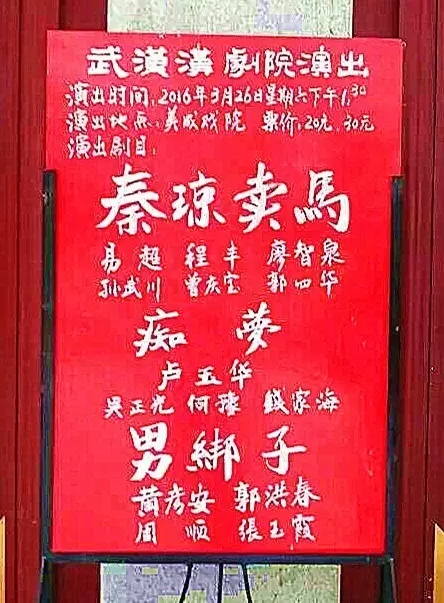 武漢漢劇院演出
演出时间:2016年3月26日星期六下午1:30
演出地点:美成戏院 票价:20元、30元
演出剧目:
秦琼卖馬
易超 程丰 廖智泉
孙武川 曾庆宝 郭四华
痴夢
卢玉华
吴正光 何臻 钱家海
男綁子
黄彦安 郭洪春
周顺 張玉霞